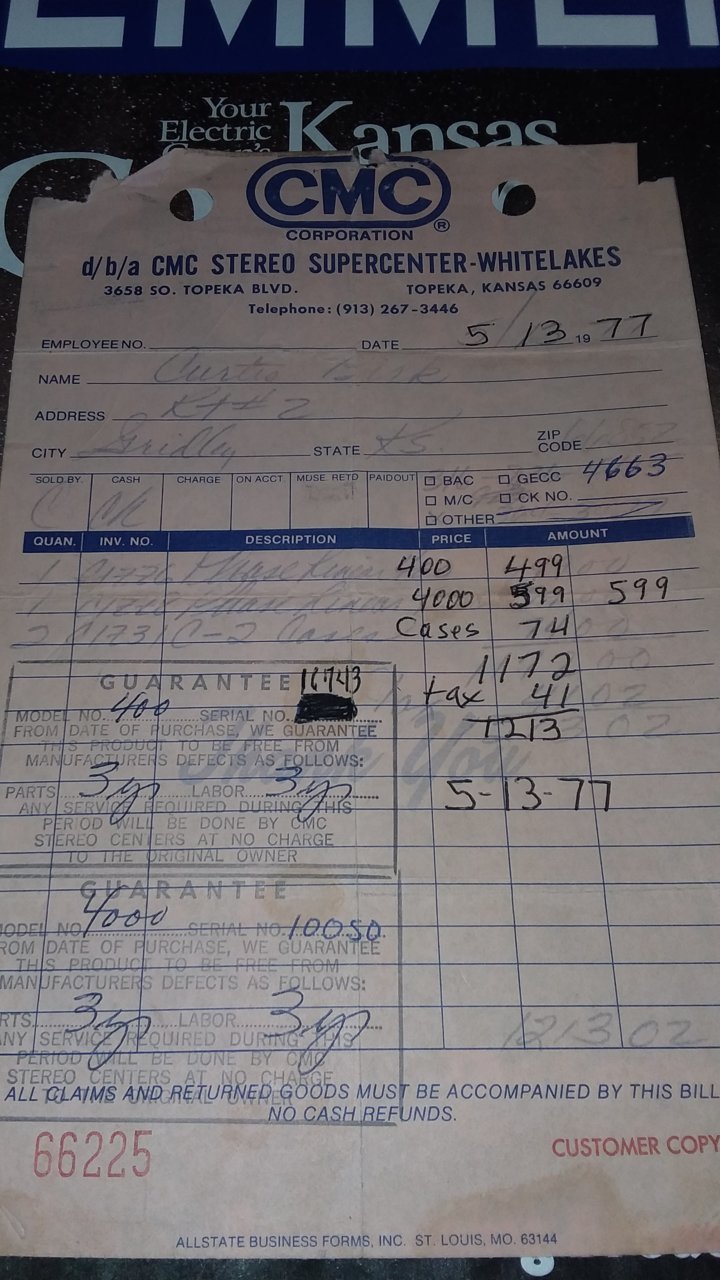 EMMEI
Your
Electric
Kansas
CMC
CORPORATION ®
d/b/a CMC STEREO SUPERCENTER-WHITELAKES
3658 SO. TOPEKA BLVD. TOPEKA, KANSAS 66609
Telephone: (913) 267-3446
EMPLOYEE NO. DATE 5/13 1977
NAME Curtis
ADDRESS Rt # 2
CITY Gridley STATE Ks. ZIP CODE
SOLD BY. CASH CHARGE ON ACCT. MDSE RETD PAIDOUT BAC GECC 4663
M/C CK NO.
OTHER
QUAN. INV. NO. DESCRIPTION PRICE AMOUNT
1 Phase Linear 400 499
1 Phase Linear 4000 599 599
2 C1731 C-2 Cases Cases 74
1172
tax 41
1213
Thank You
5-13-77
GUARANTEE 16743
MODEL NO. 400 SERIAL NO.
FROM DATE OF PURCHASE, WE GUARANTEE
THIS PRODUCT TO BE FREE FROM
MANUFACTURERS DEFECTS AS FOLLOWS:
PARTS 3yr LABOR 3yr
ANY SERVICE REQUIRED DURING THIS
PERIOD WILL BE DONE BY CMC
STEREO CENTERS AT NO CHARGE
TO THE ORIGINAL OWNER
GUARANTEE
MODEL NO. 4000 SERIAL NO. 10050
FROM DATE OF PURCHASE, WE GUARANTEE
THIS PRODUCT TO BE FREE FROM
MANUFACTURERS DEFECTS AS FOLLOWS:
PARTS 3yr LABOR 3yr
ANY SERVICE REQUIRED DURING THIS
PERIOD WILL BE DONE BY CMC
STEREO CENTERS AT NO CHARGE
TO THE ORIGINAL OWNER
1213 02
ALL CLAIMS AND RETURNED GOODS MUST BE ACCOMPANIED BY THIS BILL
NO CASH REFUNDS.
66225
CUSTOMER COPY
ALLSTATE BUSINESS FORMS, INC. ST. LOUIS, MO. 63144